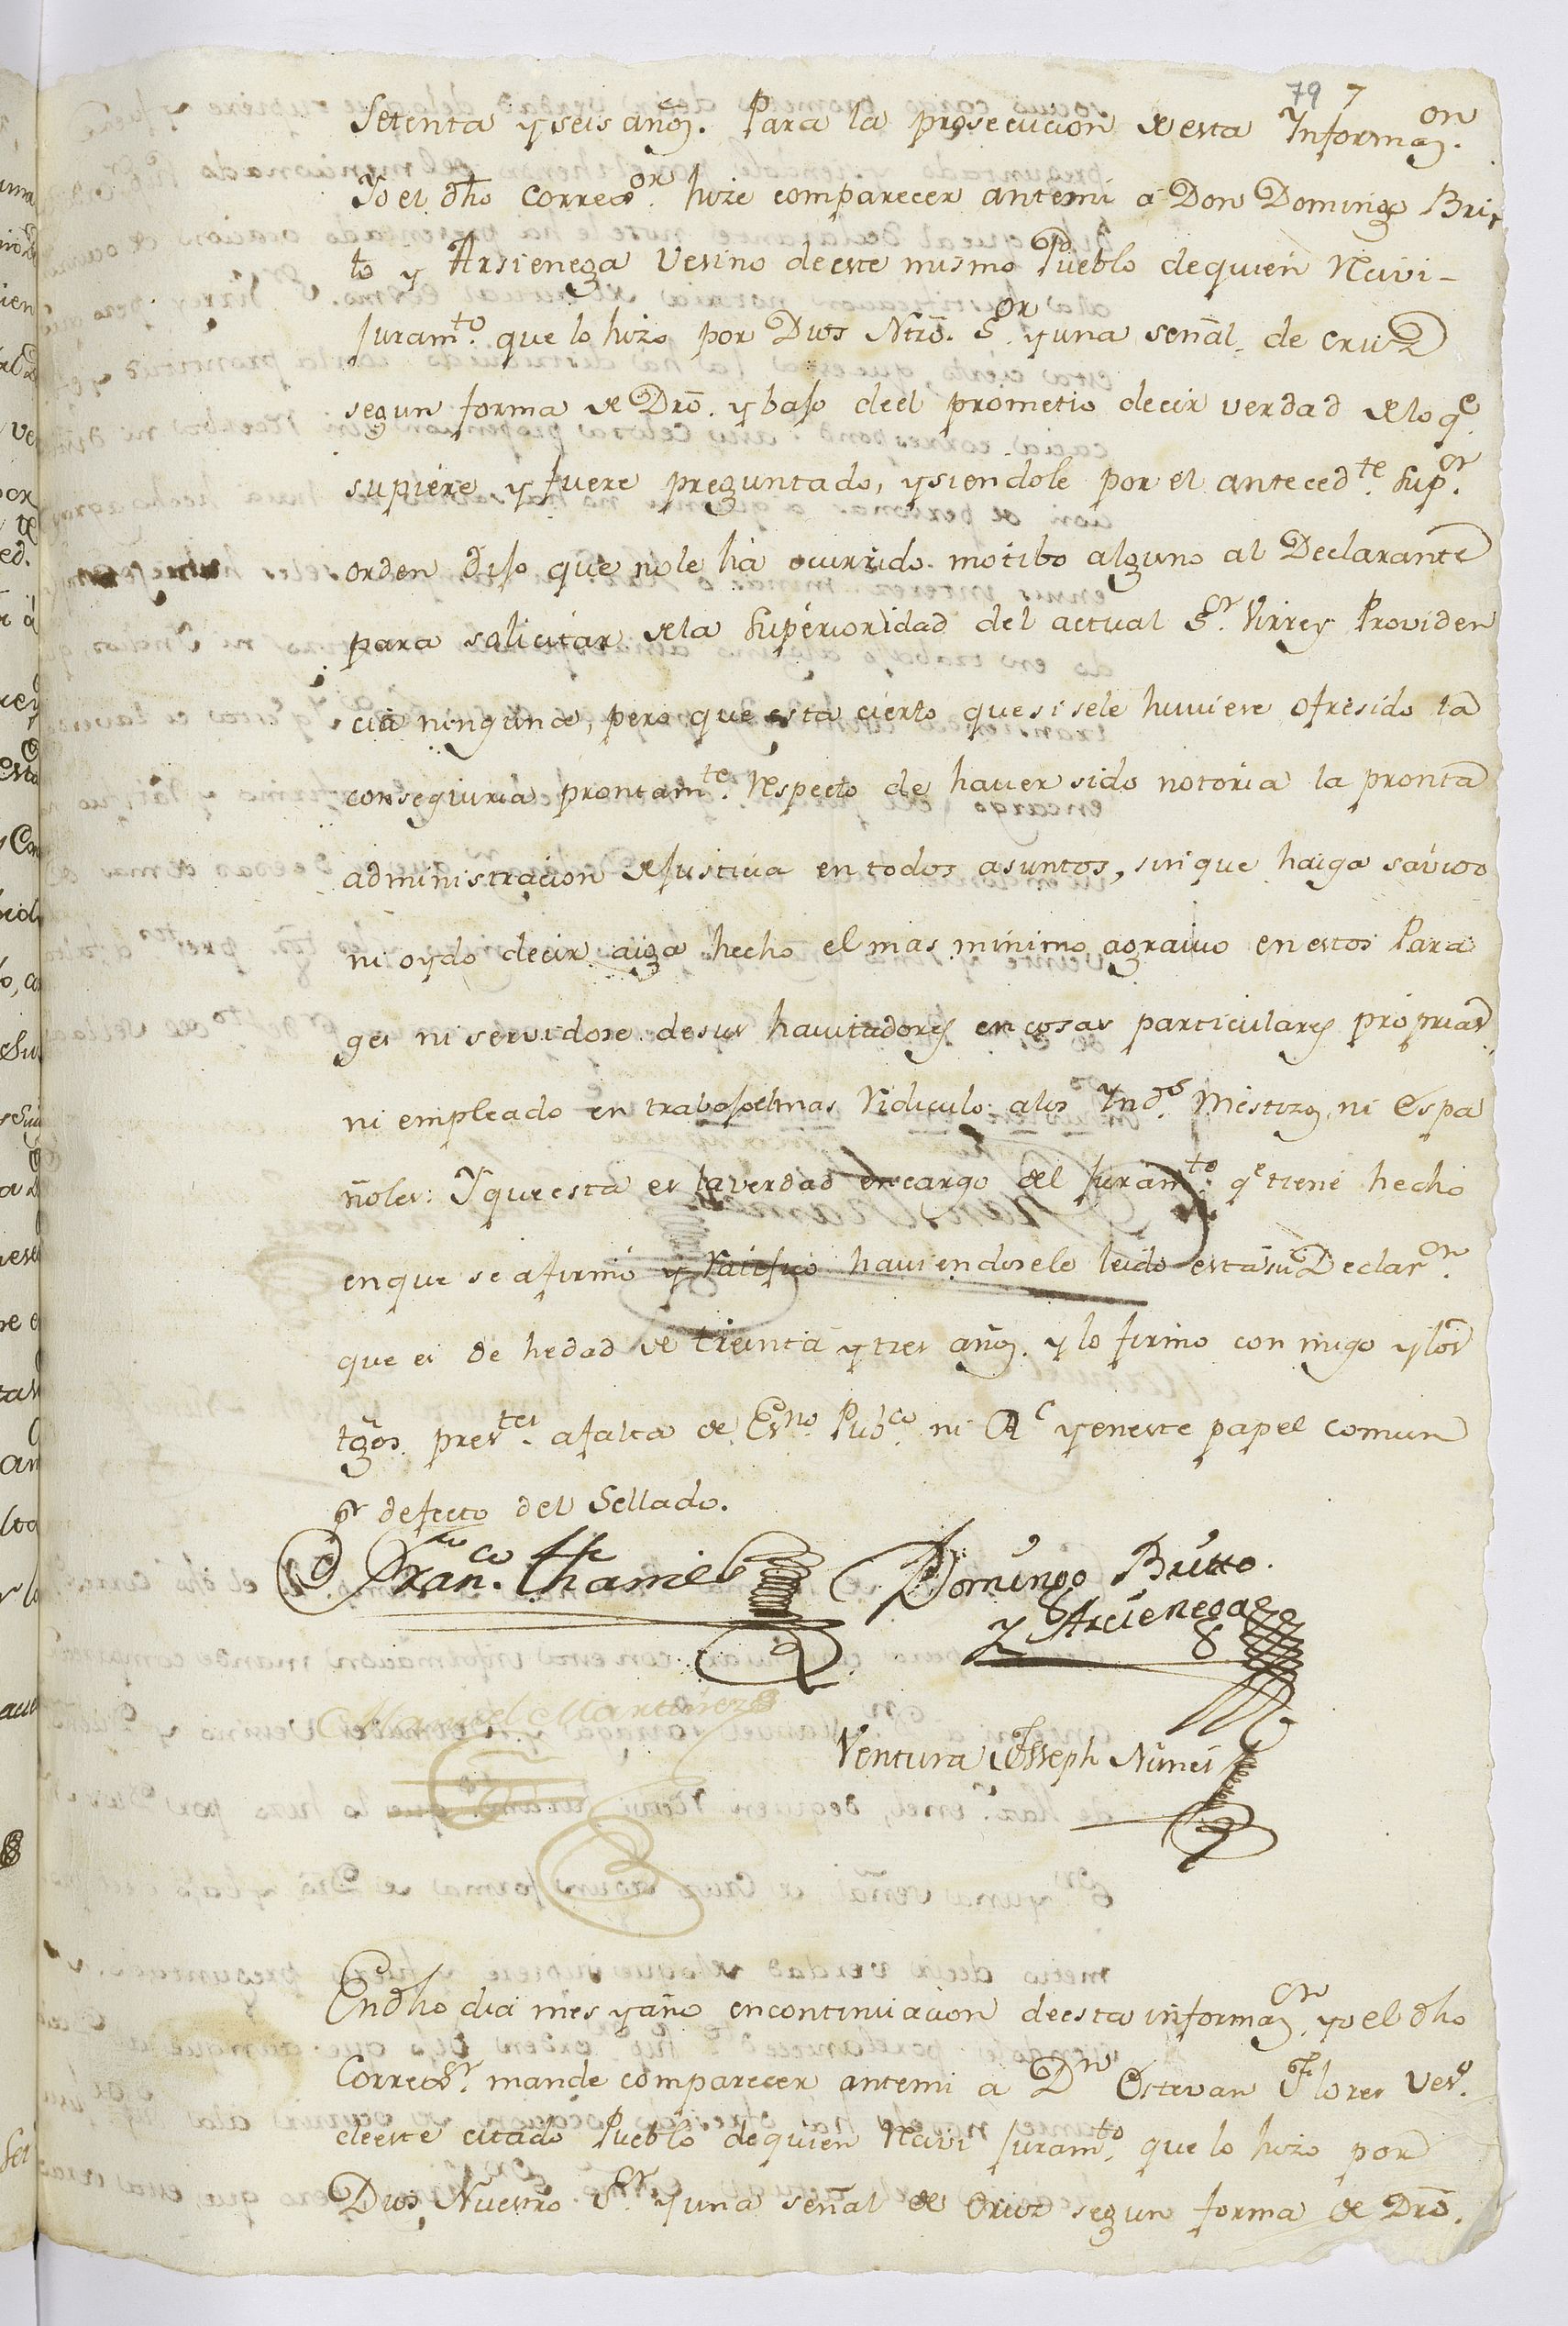 79 7
Setenta y seis añõs. Para la prosecucion de esta Informaz.on
Yo el dho Correxor. hize comparecer antemi á Don Domingo Bri
to y Arsienega Vesino de este mismo Pueblo de quien Recivi
Juramto. que lo hizo por Dios Ntrõ. Sor. y una señal de cruz
segun forma de Drõ. y bajo de el prometio decir verdad de lo qe.
supiere y fuere preguntado, y siendole por el antecedte. Supor.
orden dijo que nole há ocurrido motibo alguno al Declarante
para solicitar de la Superioridad del actual Sr. Virrey Providen
cia ninguna, pero que esta cierto que si sele huviere ofresido la
conseguiria prontamte. Respecto de haver sido notoria la pronta
administracion de Justicia en todos asuntos, sin que haiga savido
ni oydo decir aiga hecho el mas minimo agravio en estos Para
ges ni servidose de sus havitadores en cosas particulares proprias
ni empleado en trabajo el mas Ridiculo alos Yndos. Mestizos, ni Espa
ñoles: Y que esta es la verdad en cargo del Juramto. qe tiene hecho
en que se afirmó y Ratificó haviendosele leido esta su Declaron.
que es de hedad de treinta y tres años. y lo firmo con migo y los
tgos. prestes. a falta de Esno. Pubco. ni Rl y en este papel comun
pr defecto del Sellado.
Franco. Thamel
Domingo Britto
y Arcienega
Manuel Martinez
Ventura Joseph Nuñes
En dho dia mes y año en continuacion de esta informazon. yo el dho
Correxor. mande comparecer antemi a Dn Estevan Flores Veso.
de este citado Pueblo de quien Recivi Juramto. que lo hizo por
Dios Nuestro Sr. y una señal de Cruz segun forma de Drõ.